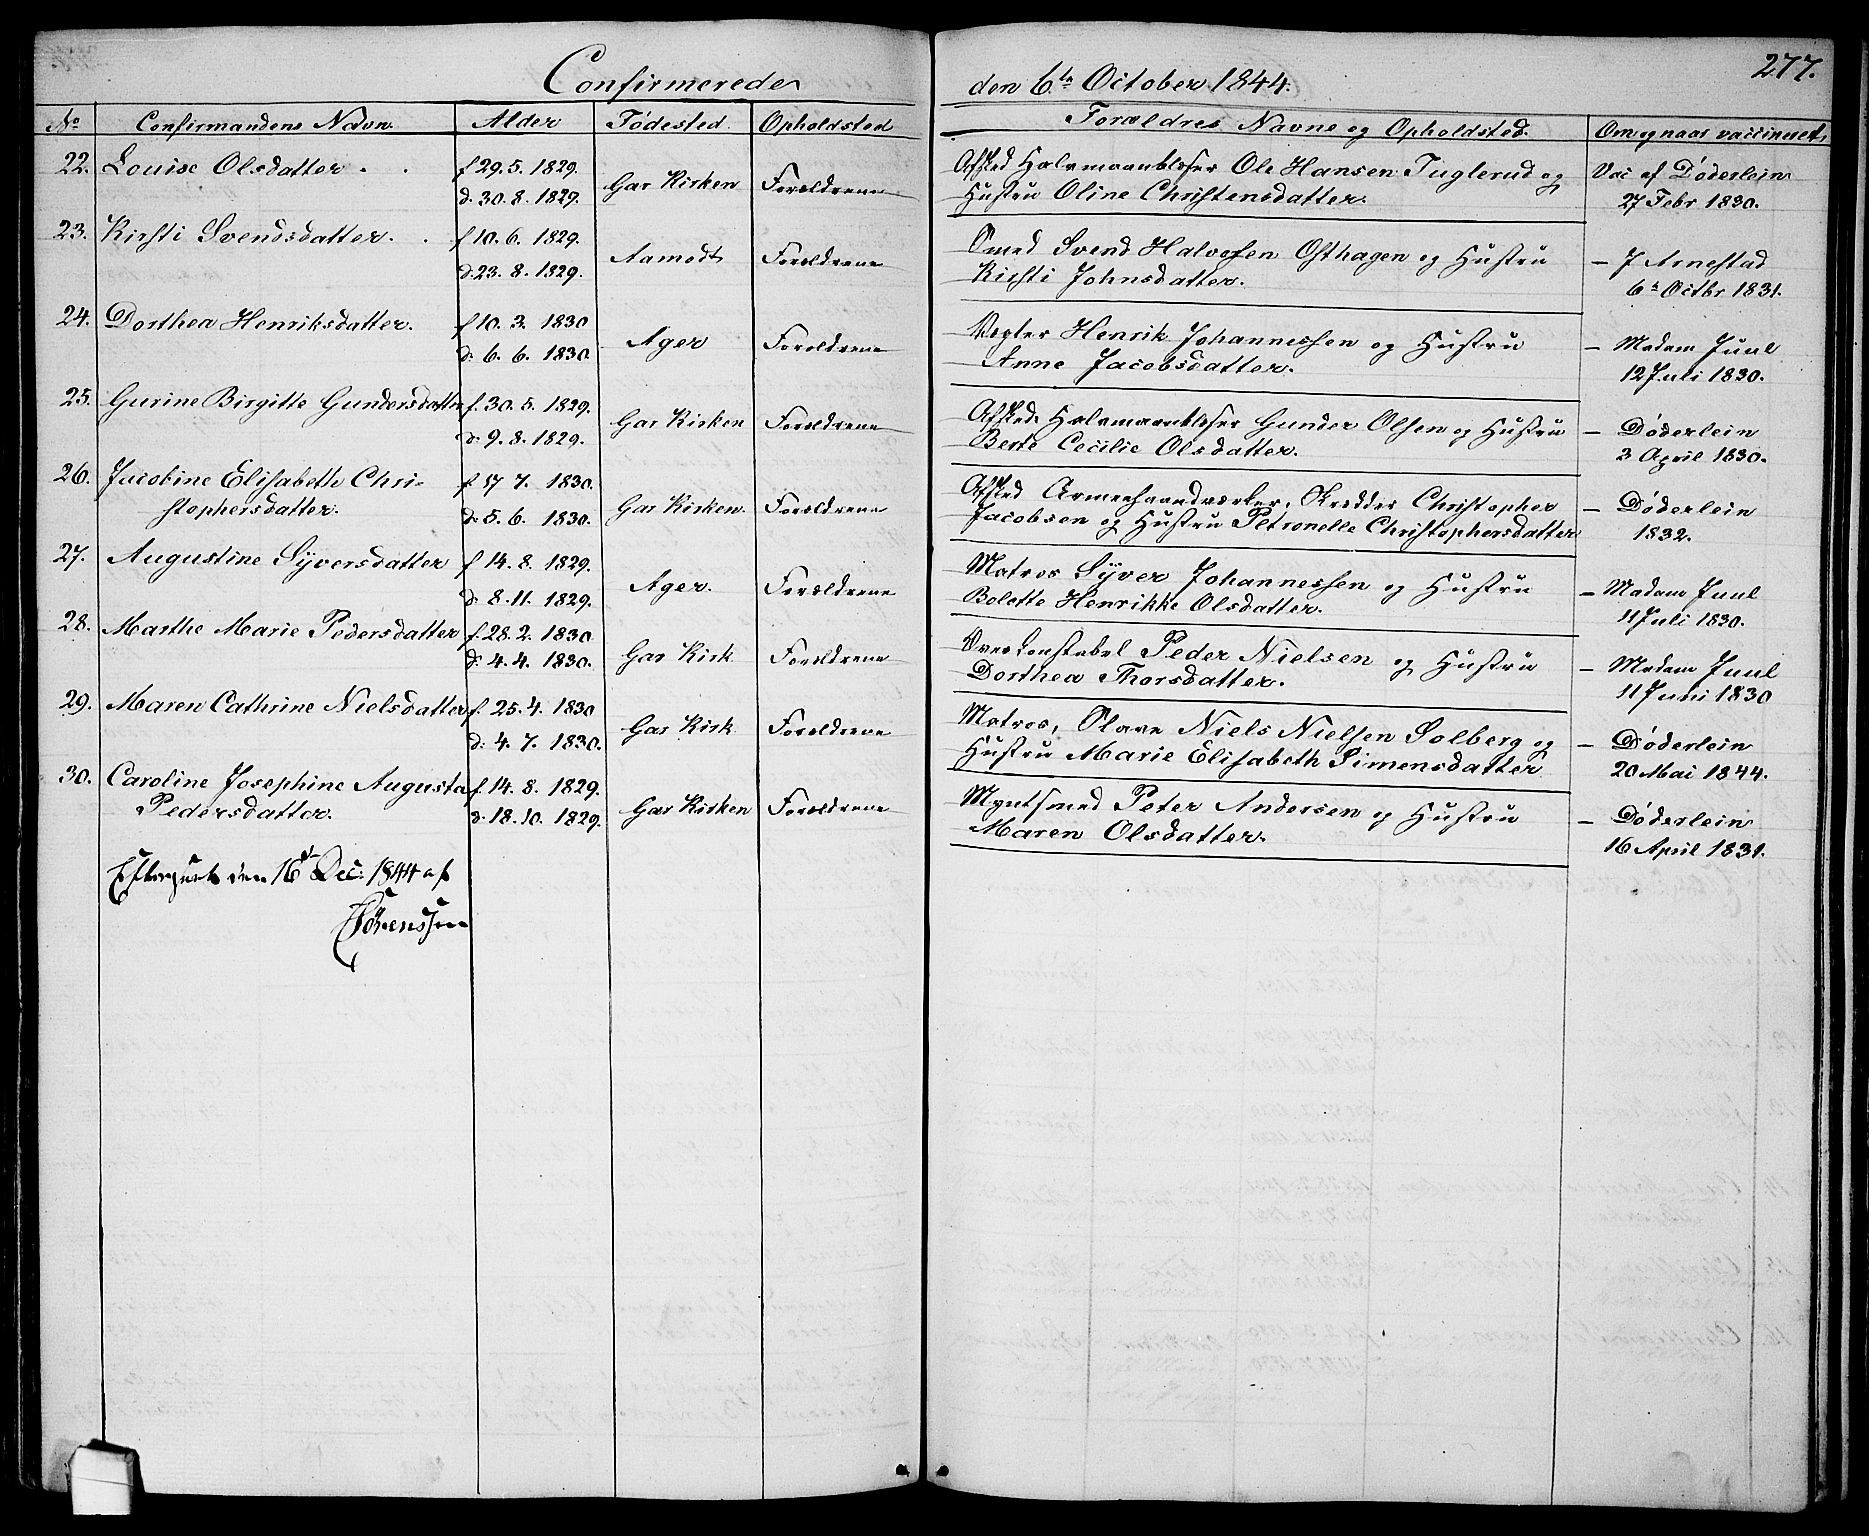 277.
Confirmerede den 6te October 1844.
No Confirmandens Navn. Alder Födested. Opholdsted Forældres Navne og Opholdsted. Om og naar vaccineret.
22. Louise Olsdatter . . f 29. 5. 1829. Gar Kirken Forældrene Afsked Halvmaanblæser Ole Hansen Tuglerud og Vac af Döderlein
d. 30. 8. 1829. Hustru Oline Christensdatter. 27 Febr 1830.
23. Kirsti Svendsdatter. . f 10. 6. 1829. Aamodt Forældrene Smed Svend Halvorsen Osthagen og Hustru – J Arnestad
d. 23. 8. 1829. Kirsti Johnsdatter. 6te Octbr 1831.
24. Dorthea Henriksdatter. f 10. 3. 1830 Ager Forældrene Vegter Henrik Johannessen og Hustru – Madam Juul
d. 6. 6. 1830. Anne Jacobsdatter. 12 Juli 1830.
25. Gurine Birgitte Gundersdatter f. 30. 5. 1829. Gar Kirken Forældrene Afsked. Halvmaanblæser Gunder Olsen og Hustru – Döderlein
d. 9. 8. 1829. Berte Cecilie Olsdatter. 3 April 1830.
26. Jacobine Elisabeth Chri- f 17 7. 1830. Gar Kirken. Forældrene Afsked Armeehaandværker, Skredder Christopher – Döderlein
stophersdatter. d. 5. 6. 1830. Jacobsen og Hustru Petronelle Christophersdatter 1832.
27. Augustine Syversdatter f 14. 8. 1829. Ager. Forældrene Matros Syver Johannessen og Hustru – Madam Juul
d. 8. 11. 1829. Bolette Henrikke Olsdatter. 11 Juli 1830.
28. Marthe Marie Pedersdatter f. 28. 2. 1830 Gar Kirk Forældrene Overkonstabel Peder Nielsen og Hustru – Madam Juul
d. 4. 4. 1830. Dorthea Thorsdatter. 11 Juni 1830
29. Maren Cathrine Nielsdatter f. 25. 4. 1830 Gar Kirk Forældrene Matros, Slave Niels Nielsen Solberg og – Döderlein
d. 4. 7. 1830. Hustru Marie Elisabeth Simensdatter 20 Mai 1844.
30. Caroline Josephine Augusta f. 14. 8. 1829. Gar Kirken Forældrene Myntsmed Peter Andersen og Hustru – Döderlein
Pedersdatter. d. 18. 10. 1829. Maren Olsdatter. 16 April 1831.
den 16de Dec: 1844 af
Sörenssen